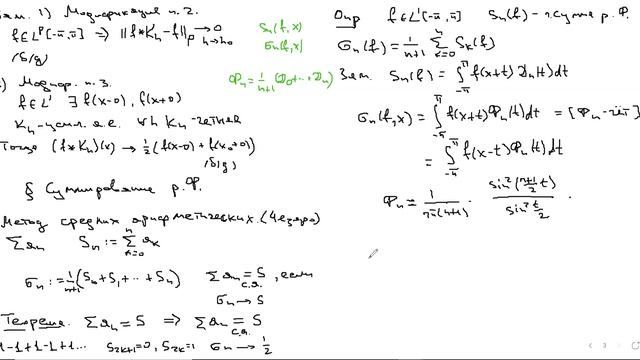 Зам. 1) Модификация п. 2.
f∈L^p[-π, π] ⇒ ||f*K_h - f||_p → 0
h→h₀
/Б/д/
) Модиф. п. 3.
f∈L¹ ∃ f(x-0), f(x+0)
K_h - усил. а.е. ∀h K_h - четная
Тогда (f*K_h)(x) → ½(f(x-0)+f(x+0))
/Б/д/
§ Суммирование р. Ф.
Метод средних арифметических (Чезаро)
∑a_n S_n := ∑_{k=0}^{n} a_k
σ_n := 1/(n+1) (S_0 + S_1 + ... + S_n) ∑a_n = S, если
с.а.
σ_n → S
Теорема. ∑a_n = S ⇒ ∑a_n = S
с.а.
1-1+1-1+1... S_{2k+1}=0, S_{2k}=1 σ_n → 1/2
S_n(f,x)
σ_n(f,x)
Φ_n = 1/(n+1) (D_0+...+D_n)
Опр f∈L¹[-π, π] S_n(f) - ч. сумма р. Ф.
σ_n(f) = 1/(n+1) ∑_{k=0}^{n} S_k(f)
Зам. S_n(f) = ∫_{-π}^{π} f(x+t) D_n(t)dt
σ_n(f,x) = ∫_{-π}^{π} f(x+t)Φ_n(t)dt = [Φ_n - чёт]
= ∫_{-π}^{π} f(x-t)Φ_n(t)dt
Φ_n = 1/(2π(n+1)) · sin²((n+1)/2 t) / sin² t/2 .
3